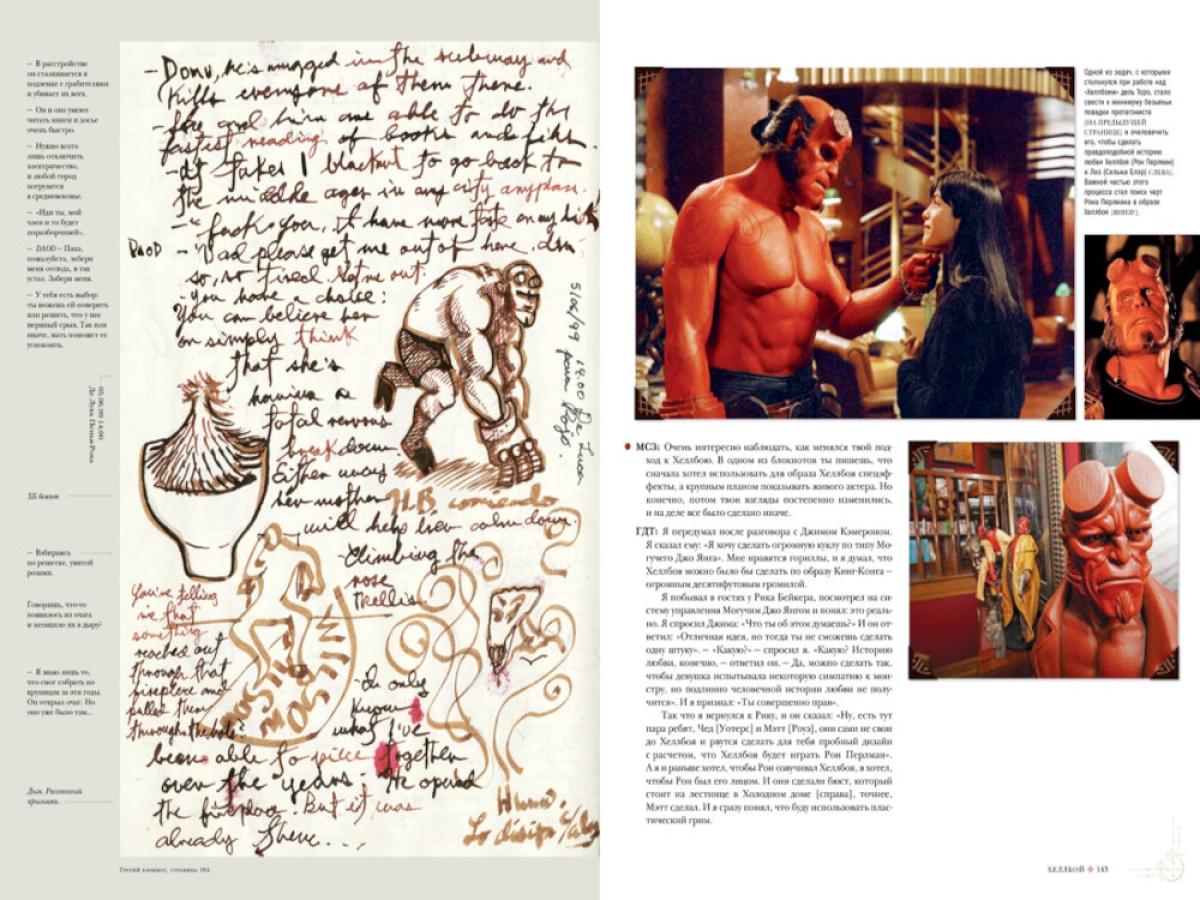 — В расстройстве
он сталкивается в
подземке с грабителями
и убивает их всех.
— Он и она умеют
читать книги и досье
очень быстро.
— Нужно всего
лишь отключить
электричество,
и любой город
погрузится
в средневековье.
— «Иди ты, мой
член и то будет
поразборчивей».
— DAOD — Папа,
пожалуйста, забери
меня отсюда, я так
устал. Забери меня.
— У тебя есть выбор:
ты можешь ей поверить
или решить, что у нее
нервный срыв. Так или
иначе, мать поможет ее
успокоить.
05.06.99 14:00
ХБ бежит
— Взбираясь
по решетке, увитой
розами.
Говоришь, что-то
появилось из очага
и затащило их в дыру?
— Я знаю лишь то,
что смог собрать по
крупицам за эти годы.
Он открыл очаг. Но
оно уже было там...
Дым. Рисованный
- Down, he's mugged in the subway and
kills everyone of them there.
- She and him are able to do the
fastest reading of books and files
- It takes 1 blackout to go back to
the middle ages in any city anyplace.
- "Fuck you, I have more taste on my dick
DAOD - "Dad please get me out of here. I'm
so, so tired. Get me out.
- You have a choice:
You can believe her
or simply think
that she's
having a
total nervous
breakdown.
Either way
her mother
will help her calm down.
H.B. corriendo
5/06/99 14:00
- Climbing the
rose
trellis
You're telling
me that
something
reached out
through that
fireplace and
pulled them
through the hole?
MONSTER IN MOTION
- I only
know
what I've
been able to piece together
over the years. He opened
the fireplace. But it was
already there...
Humo.
Третий блокнот, страница 18А
Одной из задач, с которыми
столкнулся при работе над
«Хеллбоем» дель Торо, стало
свести к минимуму безьяньи
повадки протагониста
[НА ПРЕДЫДУЩЕЙ
СТРАНИЦЕ] и очеловечить
его, чтобы сделать
правдоподобной историю
любви Хеллбоя (Рон Перлман)
и Лиз (Сельма Блэр) [СЛЕВА].
Важной частью этого
процесса стал поиск черт
Рона Перлмана в образе
Хеллбоя [ВНИЗУ].
МСЗ: Очень интересно наблюдать, как менялся твой под-
ход к Хеллбою. В одном из блокнотов ты пишешь, что
сначала хотел использовать для образа Хеллбоя спецэф-
фекты, а крупным планом показывать живого актера. Но
конечно, потом твои взгляды постепенно изменились,
и на деле все было сделано иначе.
ГДТ: Я передумал после разговора с Джимом Кэмероном.
Я сказал ему: «Я хочу сделать огромную куклу по типу Мо-
гучего Джо Янга». Мне нравятся гориллы, и я думал, что
Хеллбоя можно было бы сделать по образу Кинг-Конга —
огромным десятифутовым громилой.
Я побывал в гостях у Рика Бейкера, посмотрел на си-
стему управления Могучим Джо Янгом и понял: это реаль-
но. Я спросил Джима: «Что ты об этом думаешь?» И он от-
ветил: «Отличная идея, но тогда ты не сможешь сделать
одну штуку». — «Какую?» — спросил я. «Какую? Историю
любви, конечно, — ответил он. — Да, можно сделать так,
чтобы девушка испытывала некоторую симпатию к мон-
стру, но подлинно человечной истории любви не полу-
чится». И я признал: «Ты совершенно прав».
Так что я вернулся к Рику, и он сказал: «Ну, есть тут
пара ребят, Чед [Уотерс] и Мэтт [Роуз], они сами не свои
до Хеллбоя и рвутся сделать для тебя пробный дизайн
с расчетом, что Хеллбоя будет играть Рон Перлман».
А я и раньше хотел, чтобы Рон озвучивал Хеллбоя, я хотел,
чтобы Рон был его лицом. И они сделали бюст, который
стоит на лестнице в Холодном доме [справа], точнее,
Мэтт сделал. И я сразу понял, что буду использовать плас-
тический грим.
ХЕЛЛБОЙ 143